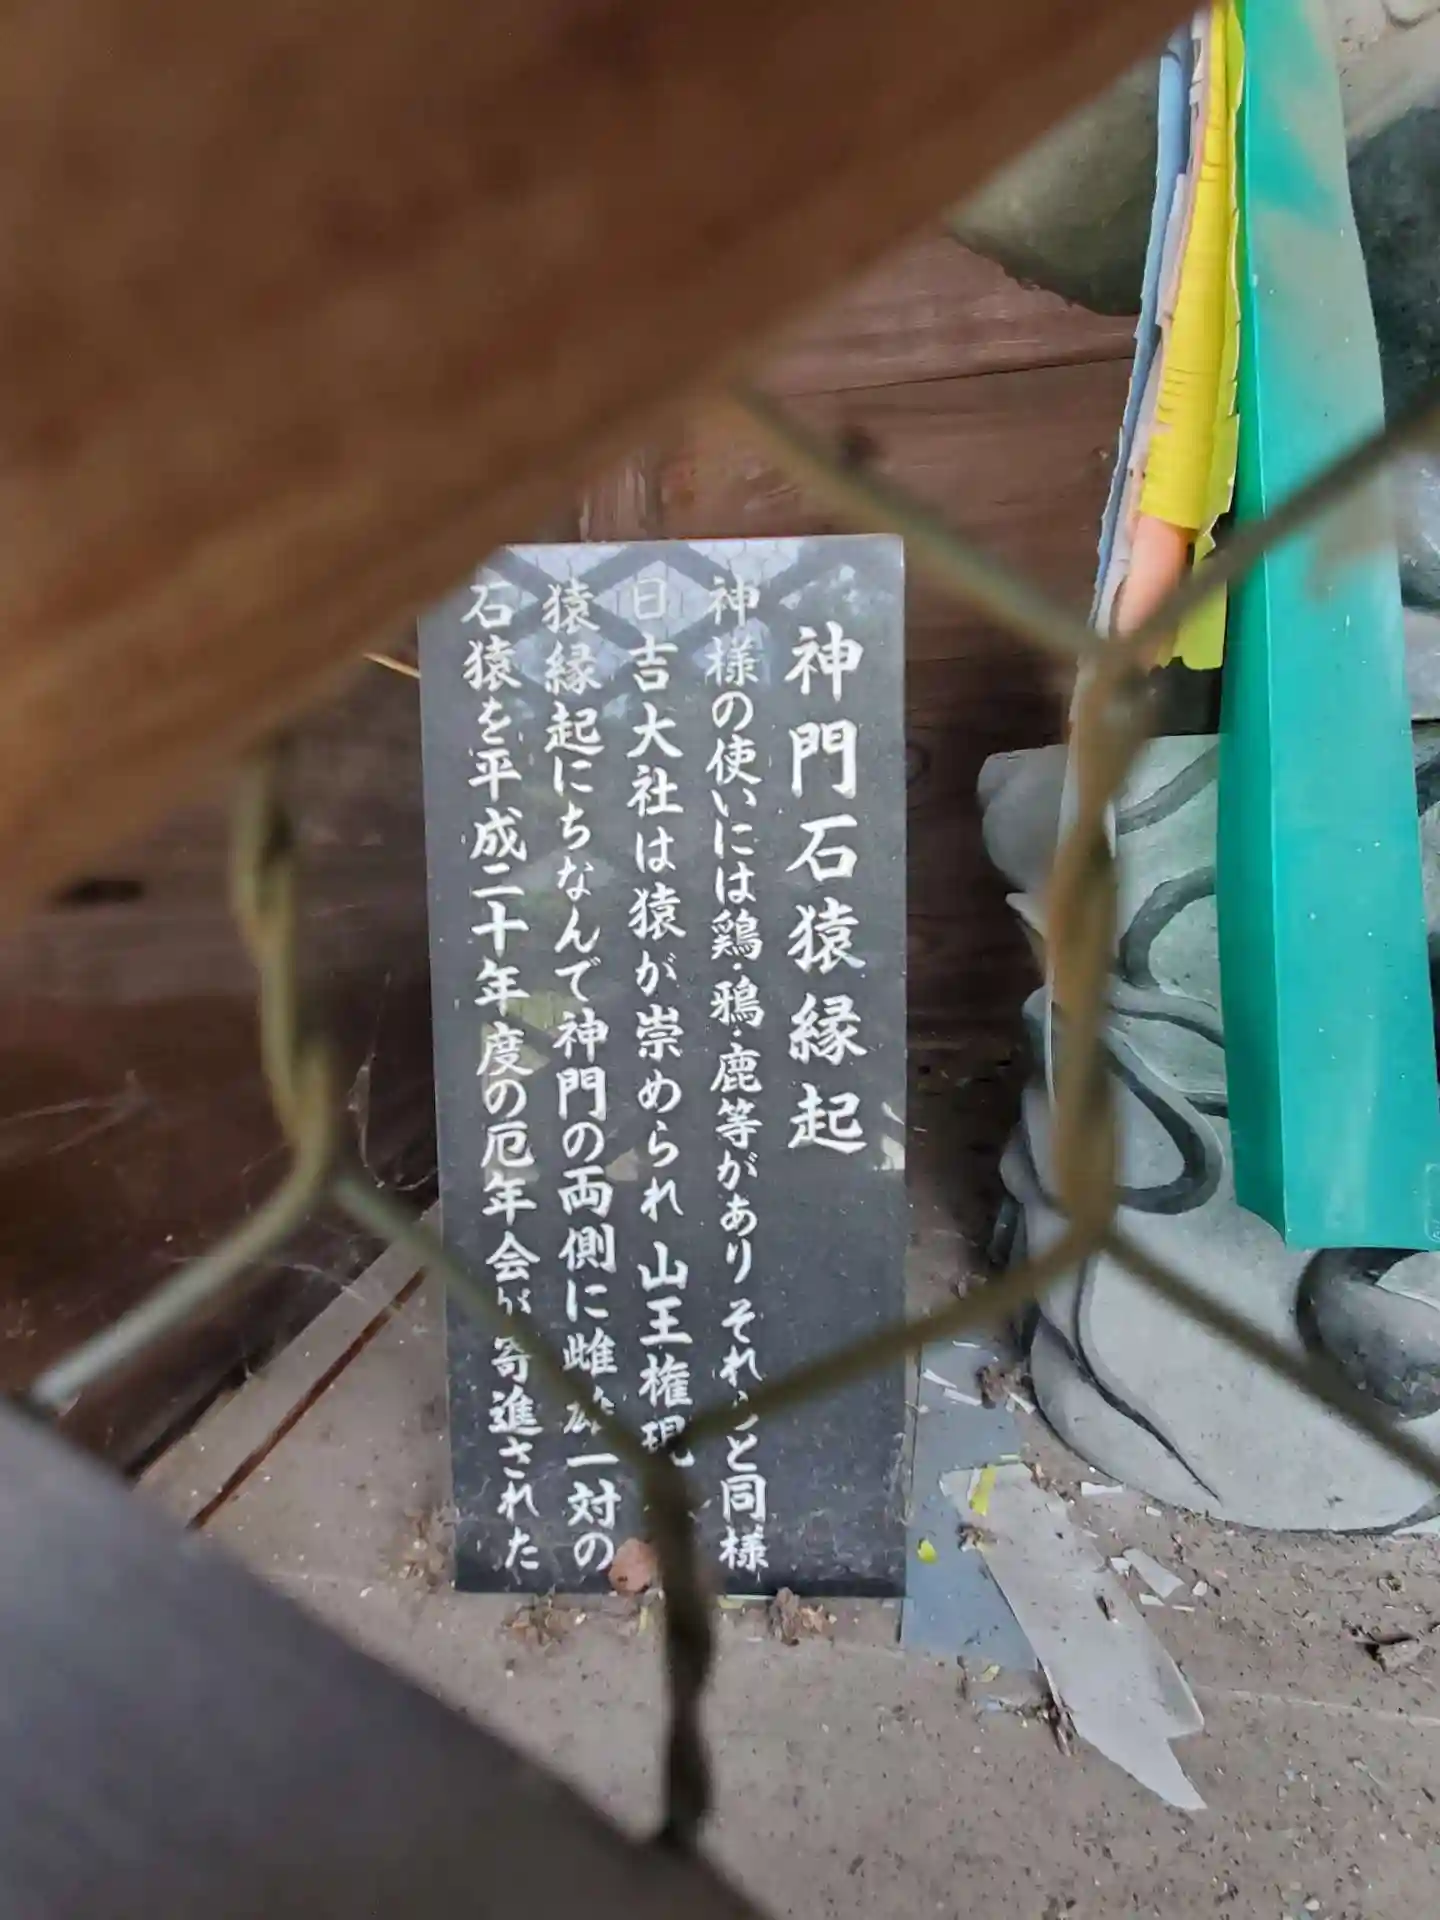 神門石猿縁起
神様の使いには鶏・鴉・鹿等があり それらと同様
日吉大社は猿が崇められ 山王権現
猿縁起にちなんで神門の両側に雌雄一対の
石猿を平成二十年度の厄年会が 寄進された